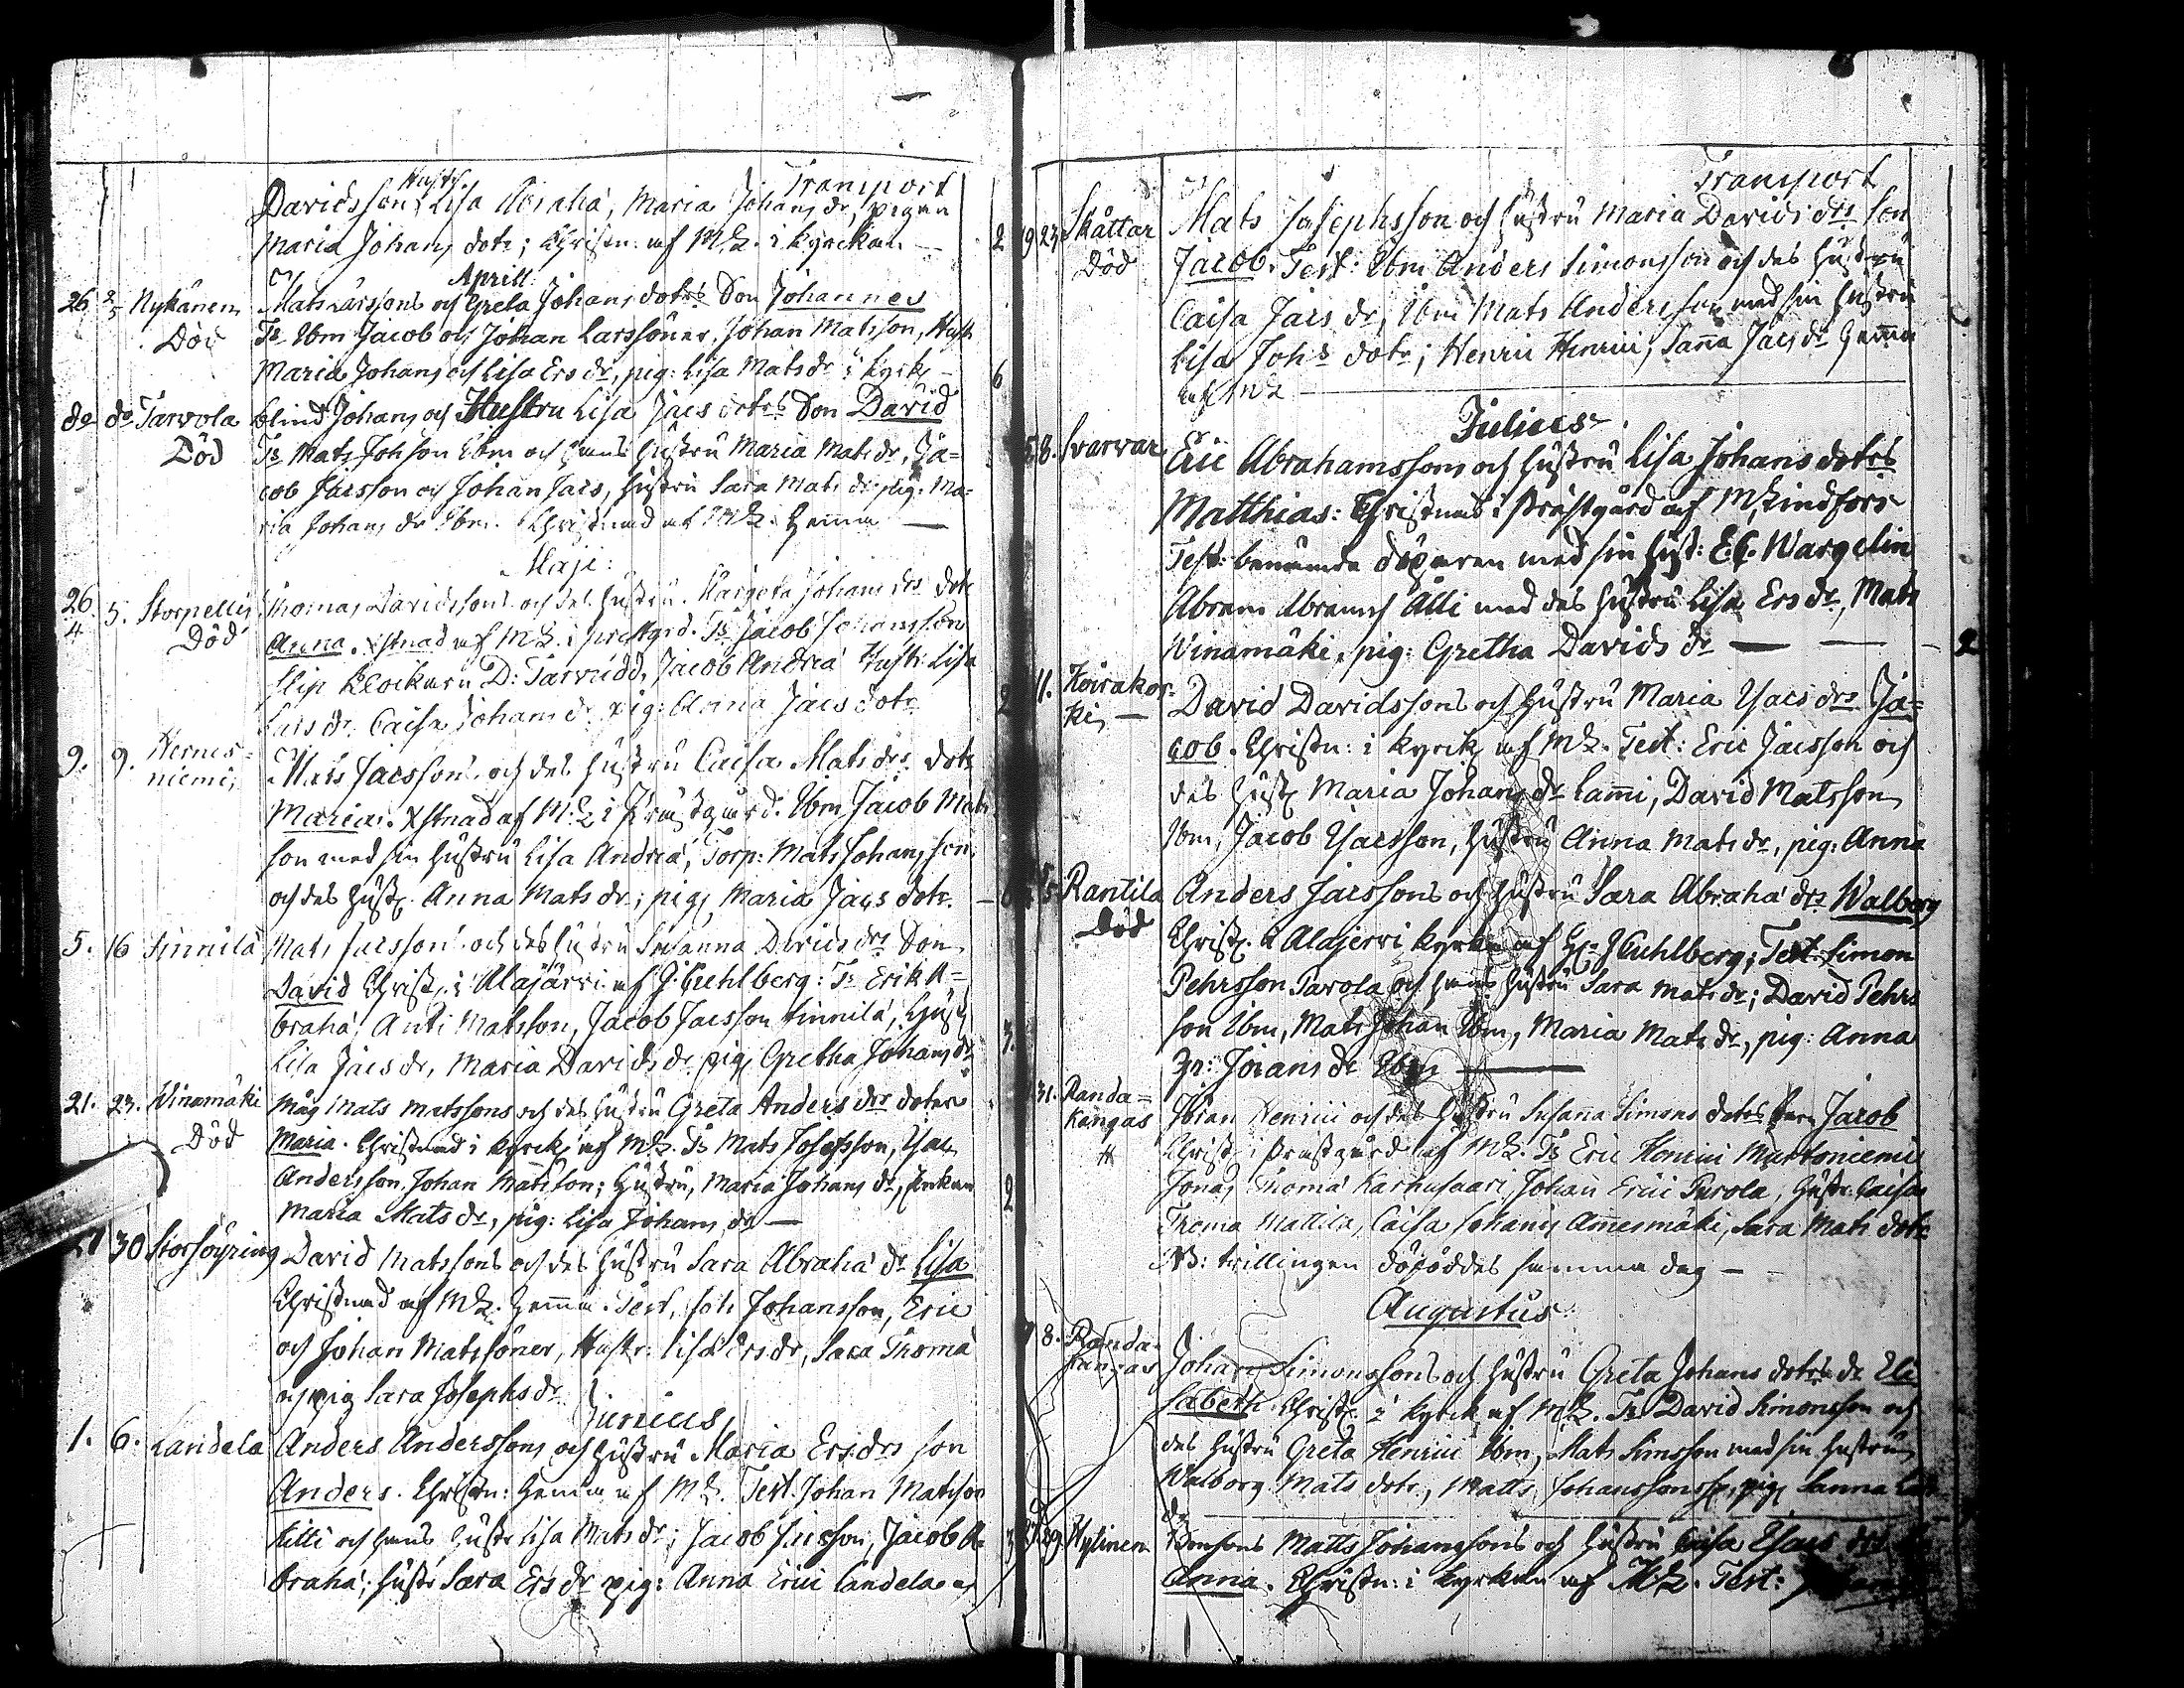 Transport
Hustr.
Davidsson, Lisa Abraha, Maria Johans dr, pigan
Maria Johans dotr; Christn. af ML. i kyrckan — 2
Aprill.
26 2/5 Nykänen Mats Larssons och Greta Johans dotrs Son Johannes
Död Ts Ibm Jacob och Johan Larssöner, Johan Matsson, Hust
Maria Johans och Lisa Ers dr, pig: Lisa Mats dr i kyrk — 6
do do Tarvola blind Johans och Hustru Lisa Jacs dotrs Son David
Död Ts Mats Johsson Ibm och hans hustru Maria Mats dr, Ja=
cob Jacsson och Johan Jacs, hustru Sara Mats dr pig. Ma=
ria Johans dr Ibm. Christnad af ML. hemma —
Maji:
26/4 5. Storpellis Thomas Davidssons och des hustru Margeta Johans drs dotr
Död Anna. Xstnad af ML. i prestgrd. Ts Jacob Johansson
Klockaren D: Tarvudd, Jacob Andrea Hustr: Lisa
Lars dr, Caisa Johans dr pig: Anna Jacs dotr 2
9. 9. Hernes= Mats Jacssons och des hustru Caisa Mats drs dotr
niemi, Maria. Xstnad af M:L i Prästgård. Ibm Jacob Mats
son med sin hustru Lisa Andrea, Torp: Mats Johansson
och des hust. Anna Mats dr; pig. Maria Jacs dotr. —
5. 16 Sinnilä Mats Jacssons och des hustru Susanna Davids drs Son
David Christ. i Alajärvi af J. Cuhlberg: Ts Erik A=
braha, Anti Matsson, Jacob Jacsson Sinnilä, Hust.
Lisa Jacs dr, Maria Davids dr pig. Gretha Johans dr 3.
21. 23. Winamäki Måg Mats Matssons och des hustru Greta Anders drs doter
Död Maria. Christnad i kyrck. af ML. Ts Mats Josefsson, Jac
Andersson, Johan Matsson; Hustru, Maria Johans dr, enkan
Maria Mats dr, pig: Lisa Johans dr — 2
27 30 Storsöyring David Matssons och des hustru Sara Abraha dr Lisa
Christnad af ML. hemma. Test. Joh Johansson, Eric
och Johan Matssöner, Hustr: Lisa Ers dr, Sara Thoma
och pig Sara Josephs dr
Junius,
1. 6. Landela Anders Anderssons och hustru Maria Ers drs son
Anders. Christn: hemma af ML. Test. Johan Matsson
Kitti och hans hustr Lisa Mats dr; Jacob Jacsson, Jacob A=
braha; hustr Sara Ers dr pig: Anna Erici Landela 3
Transport
19 23 Skåttar Mats Josephsson och hustru Maria Davids drs son
Död Jacob. Test: Ibm Anders Simonsson och des hustru
Caisa Jacs dr, Ibm Mats Andersson med sin hustru
Lisa Johs dotr; Henric Henrici, Sanna Jacs dr hemma
af ML
Julius.
5 8. Svarvar Eric Abrahamssons och hustru Lisa Johans dotrs
Matthias: Christnad i Prästgård af M, Lindfors
Test: benämnde döparen med sin hust: E. C. Wargelin
Abram Abrams Älli med des hustru Lisa Ers dr, Mats
Winamäki, pig: Gretha Davids dr — — 2
11. Koirakos= David Davidssons och hustru Maria Isacs drs Ja=
ki — cob. Christn: i kyrck af ML. Test: Eric Jacsson och
des hust. Maria Johans dr Lammi, David Matsson
Ibm, Jacob Isacsson, hustru Anna Mats dr, pig: Anna
5 Rantila Anders Jacssons och hustru Sara Abraha drs Walborg
Död Christ. i Alajervi kyrka af H. J Cuhlberg; Test Simon
Pehrsson Parola och hans hustru Sara Mats dr; David Pehrs
son Ibm, Mats Johan Ibm, Maria Mats dr, pig: Anna
Jörans dr Ibm —
31. Randa= Jöran Henrici och des hustru Susanna Simons dotrs barn Jacob
kangas Christ. i Prästgård af ML. Ts Eric Henrici Murtoniemi
Jonas Thoma Karhusaari, Johan Erici Parola, hustr: Caisa
Thoma Mattila, Caisa Johans Ammesmäki, Sara Mats dotr
NB: trillingen dödföddes samma dag —
Augustus.
8. Randa= Johan Simonssons och hustru Greta Johans dotrs dr Eli
kangas sabeth. Christ. i kyrck af ML. Ts David Simonsson och
des hustru Greta Henrici Ibm, Mats Simsson med sin hustru
Walborg Mats dotr, Matts Johansson, pig. Sanna
29 Kylinen Matts Johanssons och hustru Caisa Isacs drs
Anna. Christn: i kyrckan af M:L. Test: